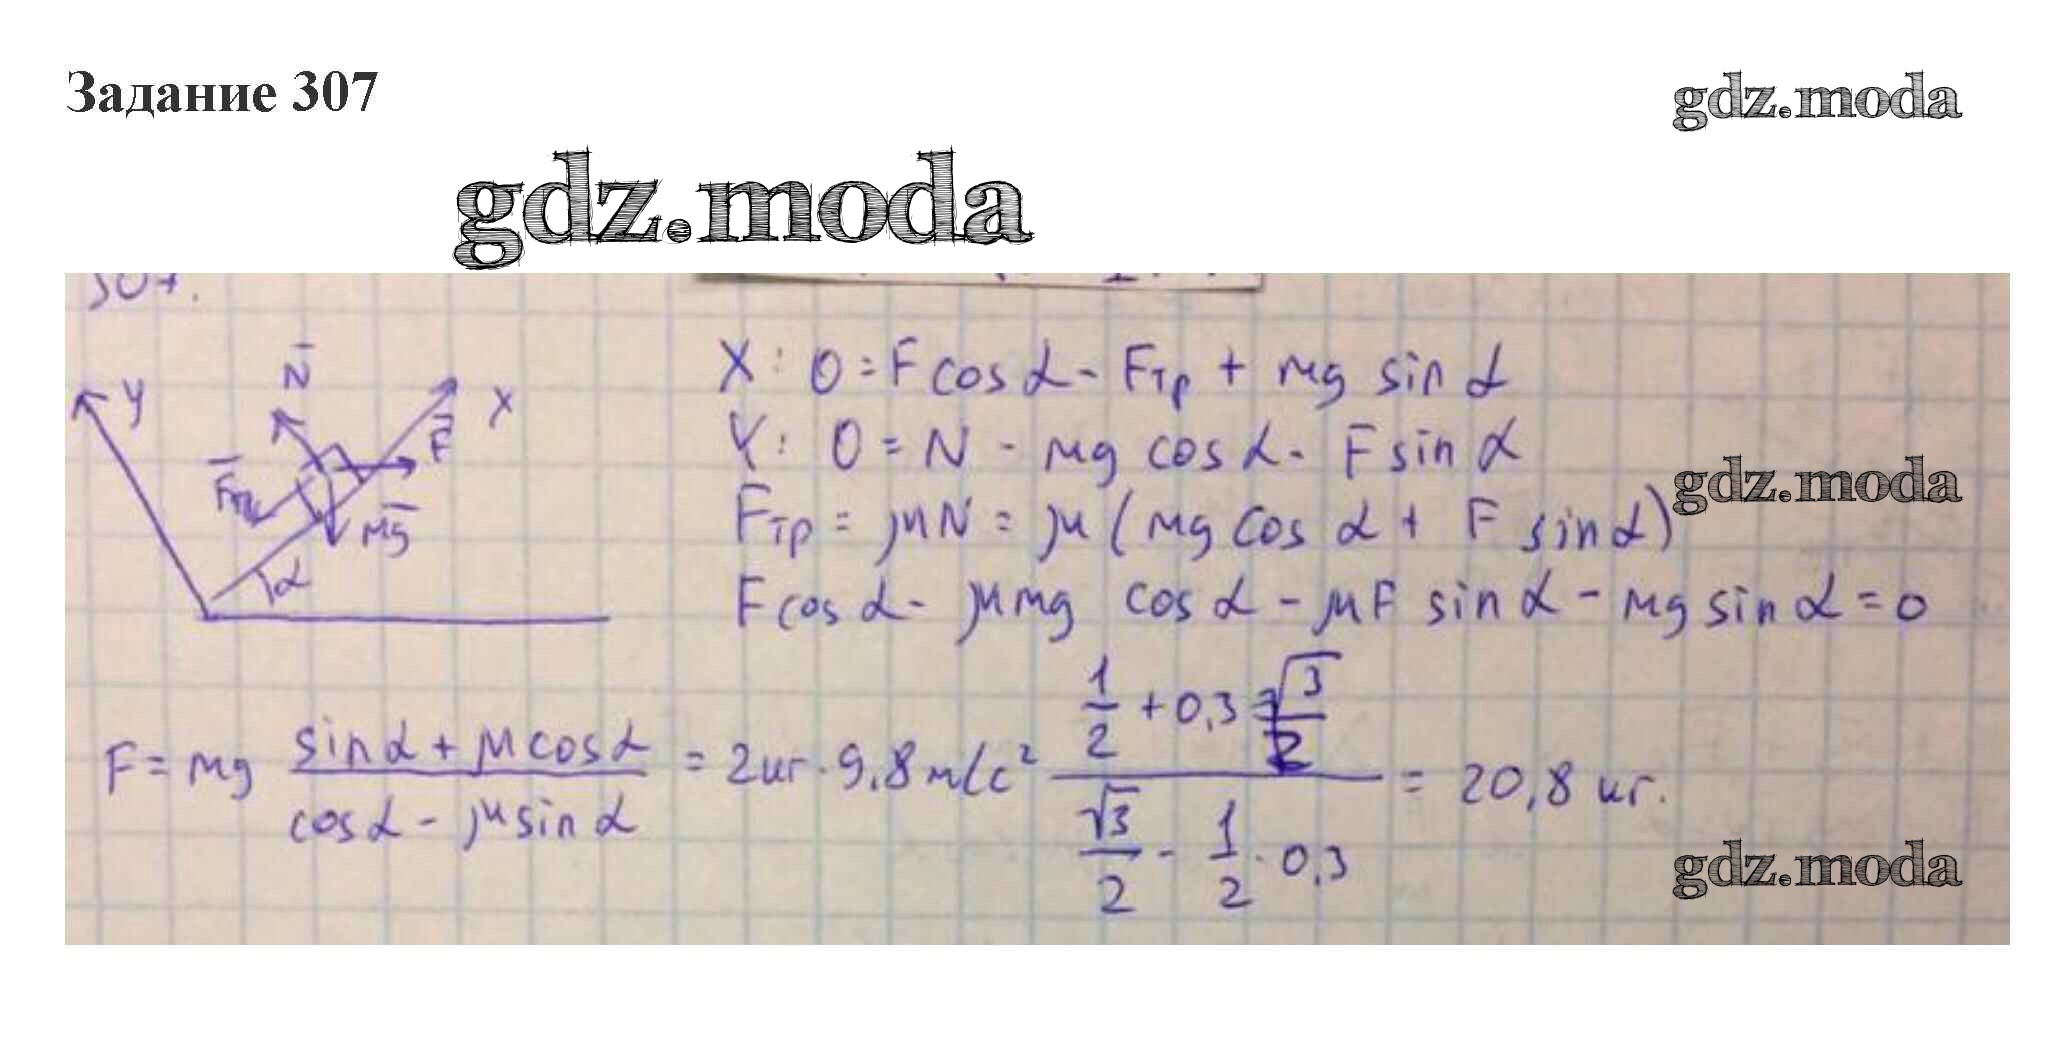 Задание 307
gdz.moda
gdz.moda
307.
N
y
X
F
Fтр
mg
α
X: 0 = F cos α - Fтр + mg sin α
Y: 0 = N - mg cos α - F sin α
gdz.moda
Fтр = μN = μ(mg cos α + F sin α)
F cos α - μmg cos α - μF sin α - mg sin α = 0
F = mg (sin α + μ cos α)/(cos α - μ sin α) = 2 кг · 9,8 м/с² (1/2 + 0,3 √3/2)/(√3/2 - 1/2 · 0,3) = 20,8 кг.
gdz.moda